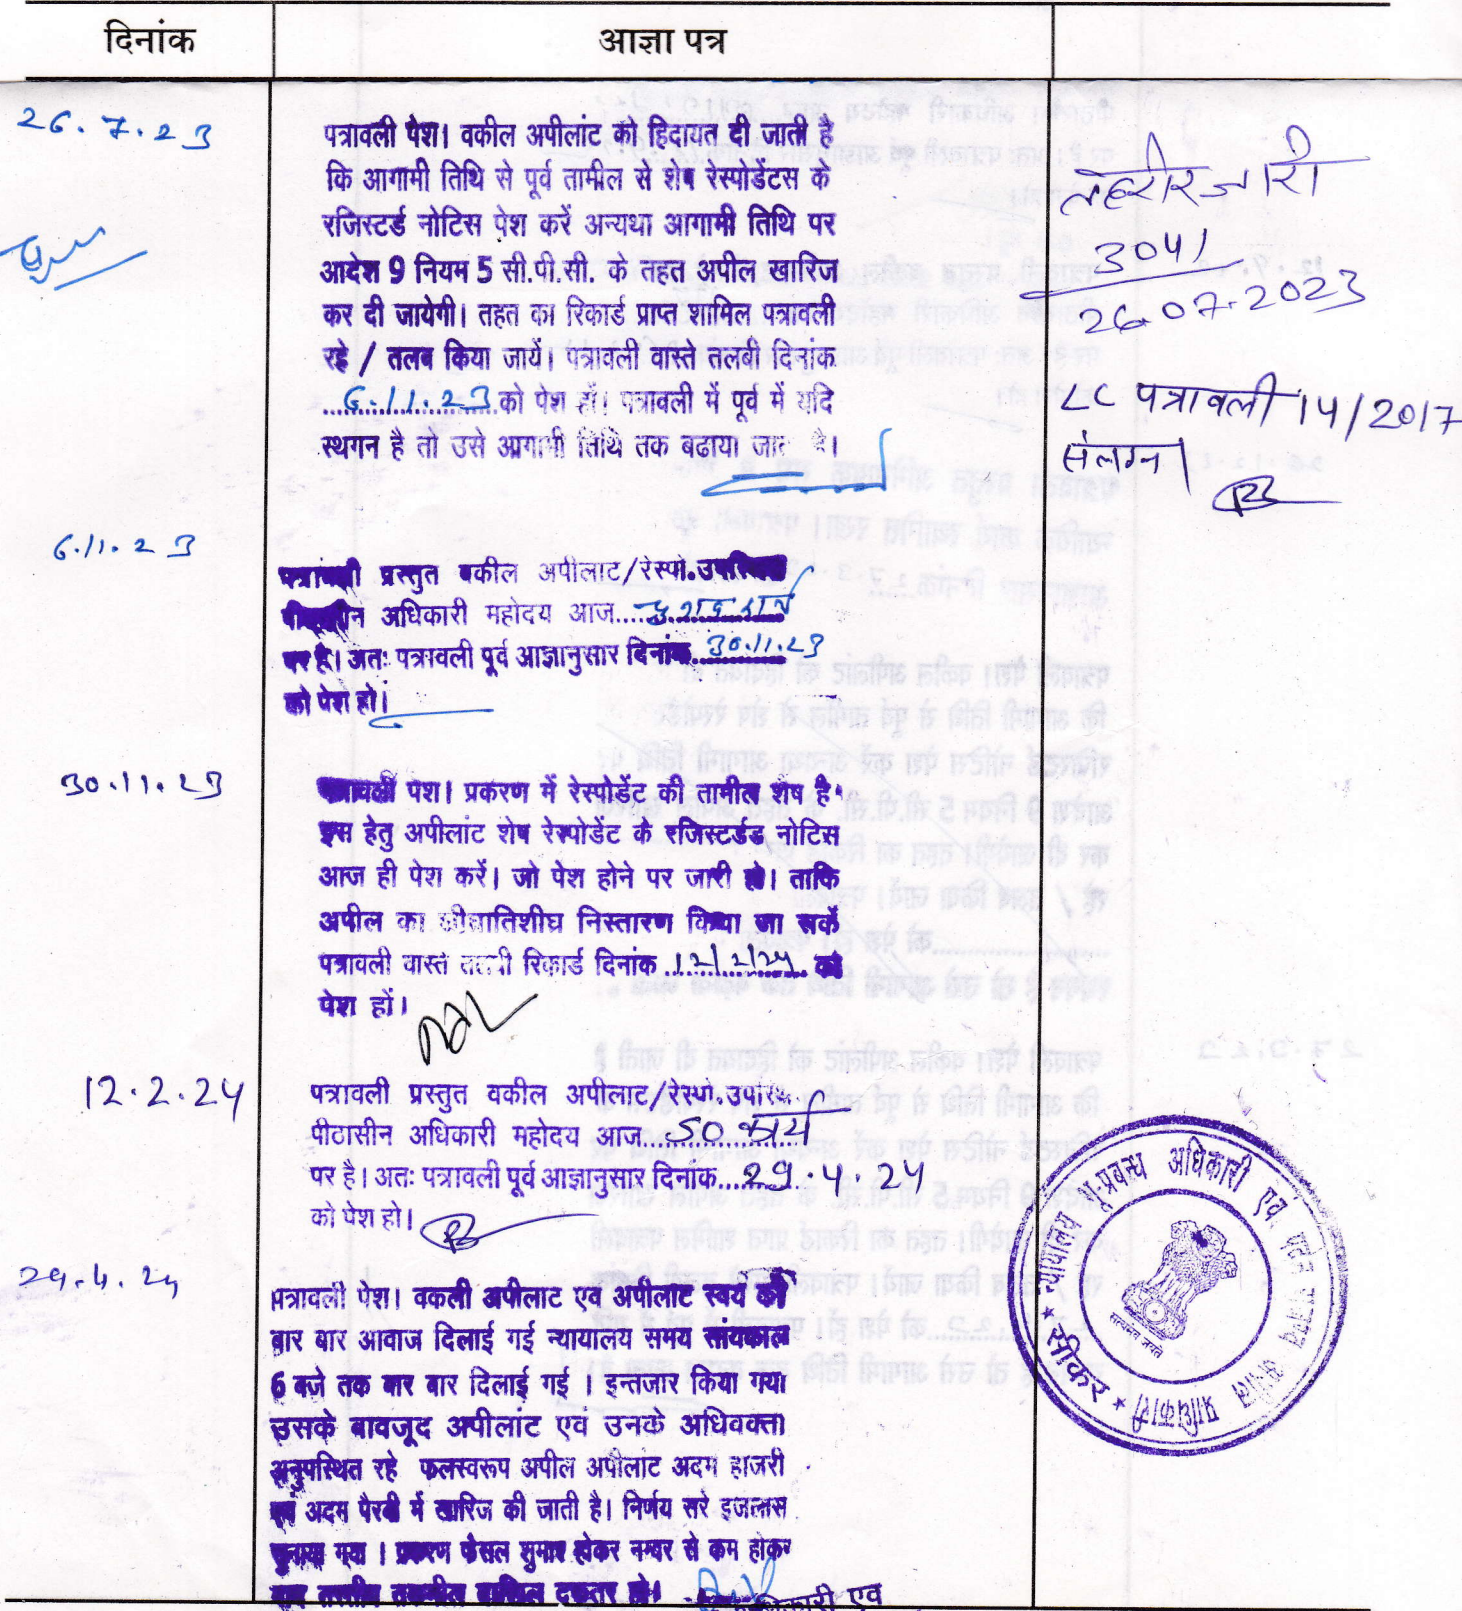 दिनांक
आज्ञा पत्र
26.7.23
पत्रावली पेश। वकील अपीलांट को हिदायत दी जाती है
कि आगामी तिथि से पूर्व तामील से शेष रेस्पोडेंटस के
रजिस्टर्ड नोटिस पेश करें अन्यथा आगामी तिथि पर
आदेश 9 नियम 5 सी.पी.सी. के तहत अपील खारिज
कर दी जायेगी। तहत का रिकार्ड प्राप्त शामिल पत्रावली
रहे / तलब किया जायें। पत्रावली वास्ते तलबी दिनांक
6.11.23 को पेश हों। पत्रावली में पूर्व में यदि
स्थगन है तो उसे आगामी तिथि तक बढाया जाता है।
तहरीर जारी
3041
26.07.2023
LC पत्रावली 14/2017
संलग्न
6.11.23
पत्रावली प्रस्तुत वकील अपीलाट/रेस्पो.उपस्थित
पीठासीन अधिकारी महोदय आज....
पर है। अतः पत्रावली पूर्व आज्ञानुसार दिनांक 30.11.23
को पेश हो।
30.11.23
पत्रावली पेश। प्रकरण में रेस्पोडेंट की तामील शेष है।
इस हेतु अपीलांट शेष रेस्पोडेंट के रजिस्टर्डड नोटिस
आज ही पेश करें। जो पेश होने पर जारी हो। ताकि
अपील का शीघ्रातिशीघ्र निस्तारण किया जा सकें
पत्रावली वास्ते तलबी रिकार्ड दिनांक 12/2/24 को
पेश हों।
12.2.24
पत्रावली प्रस्तुत वकील अपीलाट/रेस्पो.उपस्थि
पीठासीन अधिकारी महोदय आज....SO कार्य
पर है। अतः पत्रावली पूर्व आज्ञानुसार दिनांक....29.4.24
को पेश हो।
29.4.24
पत्रावली पेश। वकली अपीलाट एव अपीलाट स्वयं को
बार बार आवाज दिलाई गई न्यायालय समय सांयकाल
6 बजे तक बार बार दिलाई गई । इन्तजार किया गया
उसके बावजूद अपीलांट एवं उनके अधिवक्ता
अनुपस्थित रहे फलस्वरूप अपील अपीलाट अदम हाजरी
एवं अदम पैरवी में खारिज की जाती है। निर्णय सरे इजलास
सुनाया गया । प्रकरण फेसल शुमार होकर नम्बर से कम होकर
बाद तरतीब तकमील दाखिल दफ्तर हो।
अधिकारी एव
न्यायालय भू-प्रबन्ध अधिकारी एवं पदेन राजस्व अपील प्राधिकारी
★ सीकर ★
सत्यमेव जयते